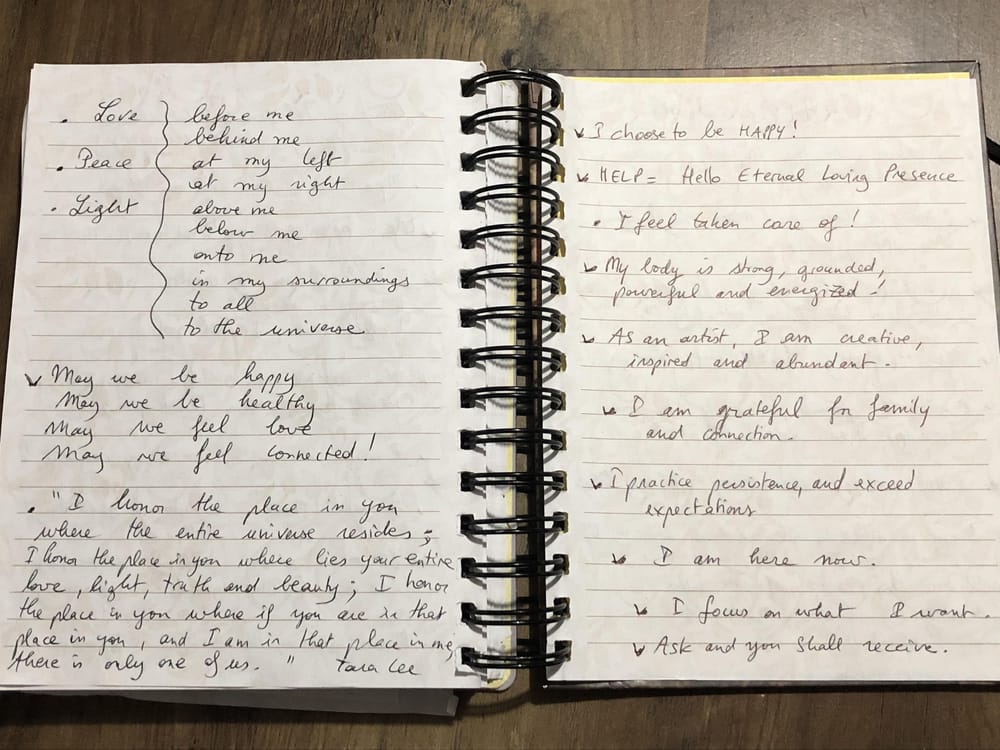 • Love } before me
behind me
• Peace at my left
at my right
• Light above me
below me
onto me
in my surroundings
to all
to the universe
✓ May we be happy
May we be healthy
May we feel love
May we feel connected!
• "I honor the place in you
where the entire universe resides;
I honor the place in you where lies your entire
love, light, truth and beauty; I honor
the place in you where if you are in that
place in you, and I am in that place in me,
there is only one of us." Tara Lee
✓ I choose to be HAPPY!
✓ HELP = Hello Eternal Loving Presence
• I feel taken care of!
✓ My body is strong, grounded,
powerful and energized!
✓ As an artist, I am creative,
inspired and abundant.
✓ I am grateful for family
and connection.
✓ I practice persistence, and exceed
expectations
✓ I am here now.
✓ I focus on what I want.
✓ Ask and you shall receive.